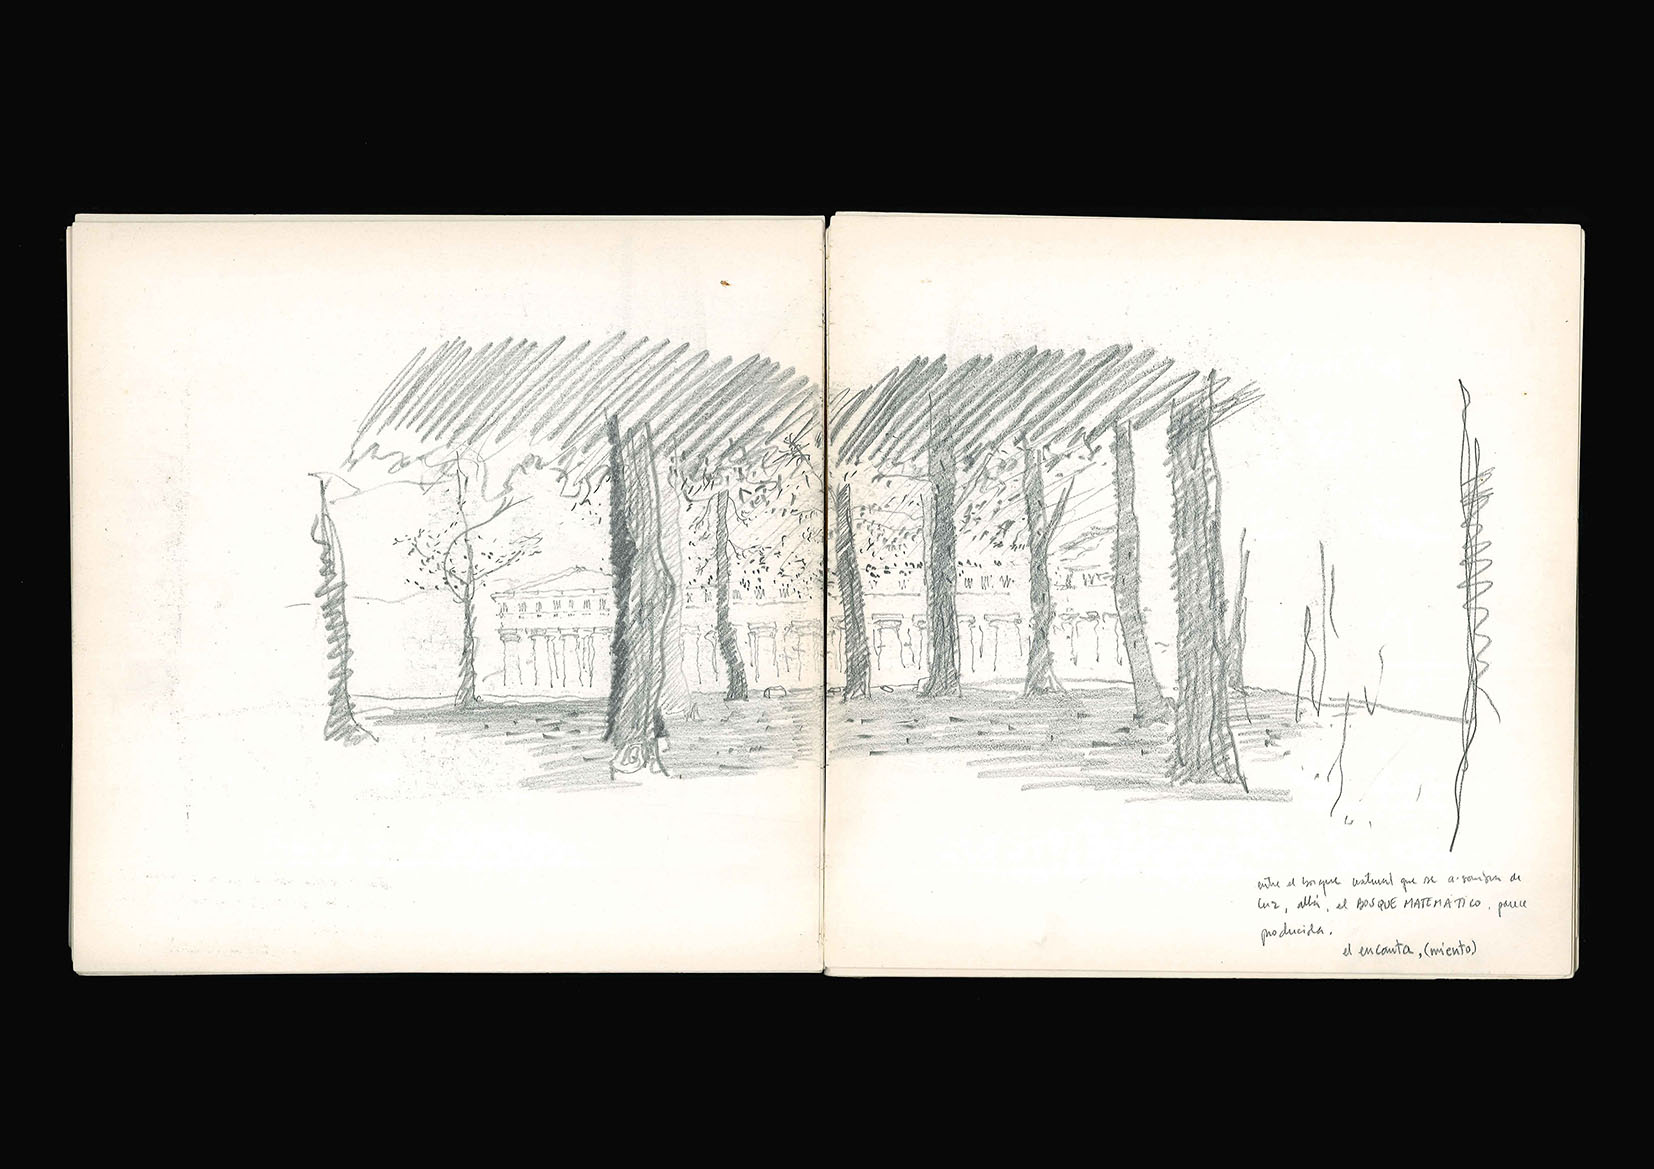 entre el bosque natural que se a-sombra de
luz, allá, el BOSQUE MATEMÁTICO, parece
producida.
el encanta, (miento)